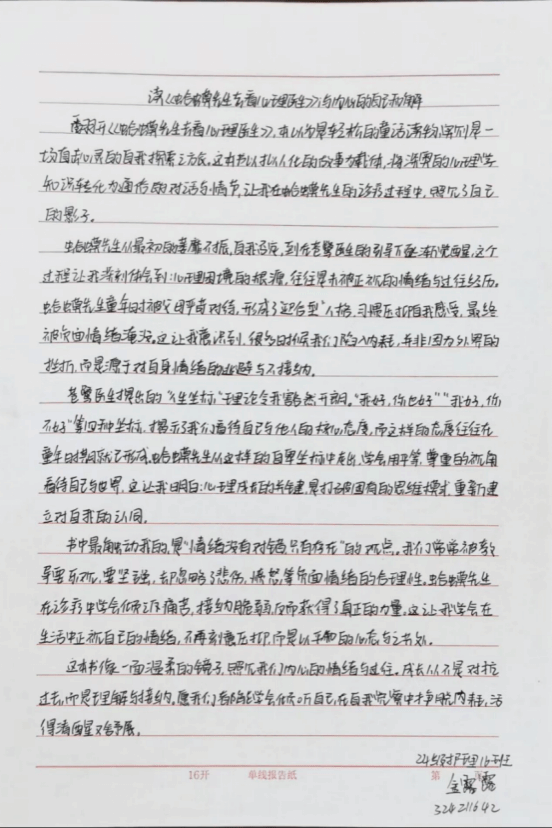 读《蛤蟆先生去看心理医生》：与内心的自己和解
翻开《蛤蟆先生去看心理医生》，本以为是轻松的童话读物，实则是一
场直击心灵的自我探索之旅。这本书以拟人化的故事为载体，将深奥的心理学
知识转化为通俗的对话与情节，让我在蛤蟆先生的诊疗过程中，照见了自己
的影子。
蛤蟆先生从最初的萎靡不振，自我否定，到在苍鹭医生的引导下逐渐觉醒，这个
过程让我深刻体会到：心理困境的根源，往往是未被正视的情绪与过往经历。
蛤蟆先生童年时被父母严苛对待，形成了"迎合型"人格，习惯压抑自我感受，最终
被负面情绪淹没。这让我意识到，很多时候我们陷入内耗，并非因为外界的
挫折，而是源于对自身情绪的逃避与不接纳。
苍鹭医生提出的"人生坐标"理论令我豁然开朗。"我好，你也好""我好，你
不好"等四种坐标，揭示了我们看待自己与他人的核心态度，而这样的态度往往在
童年时期就已形成。蛤蟆先生从这样的自卑坐标中走出，学会用平等、尊重的视角
看待自己与世界，这让我明白：心理成长的关键，是打破固有的思维模式，重新建
立对自我的认同。
书中最触动我的，是"情绪没有对错，只有存在"的观点。我们常常被教
导要乐观，要坚强，却忽略了悲伤，愤怒等负面情绪的合理性。蛤蟆先生
在诊疗中学会倾诉痛苦，接纳脆弱，反而获得了真正的力量。这让我学会在
生活中正视自己的情绪，不再刻意压抑，而是以平和的心态与之共处。
这本书像一面温柔的镜子，照见我们内心的情绪与过往。成长从不是对抗
过去，而是理解与接纳，愿我们都能学会倾听自己，在自我觉察中挣脱内耗，活
得清醒又舒展。
24级护理16班
金露露
324211642
16开 单线报告纸 第